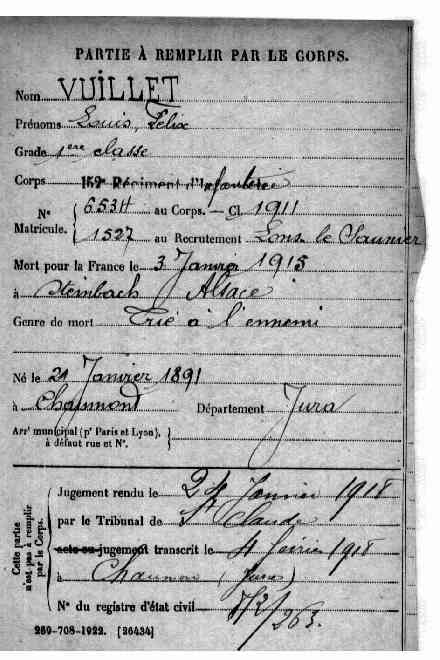 PARTIE À REMPLIR PAR LE CORPS.
Nom VUILLET
Prénoms Louis, Félix
Grade 1ere classe
Corps 152e Régiment d'Infanterie
N° Matricule. { 6534 au Corps. — Cl. 1911
1527 au Recrutement Lons le Saunier
Mort pour la France le 3 Janvier 1915
à Steinbach Alsace
Genre de mort Tué à l'ennemi
Né le 21 Janvier 1891
à Chaumont Département Jura
Arrt municipal (pr Paris et Lyon),
à défaut rue et N°.
Cette partie n'est pas à remplir par le Corps.
Jugement rendu le 24 Janvier 1918
par le Tribunal de St Claude
acte ou jugement transcrit le 4 février 1918
à Chaumont (Jura)
N° du registre d'état civil 263
259-708-1922. [26434]